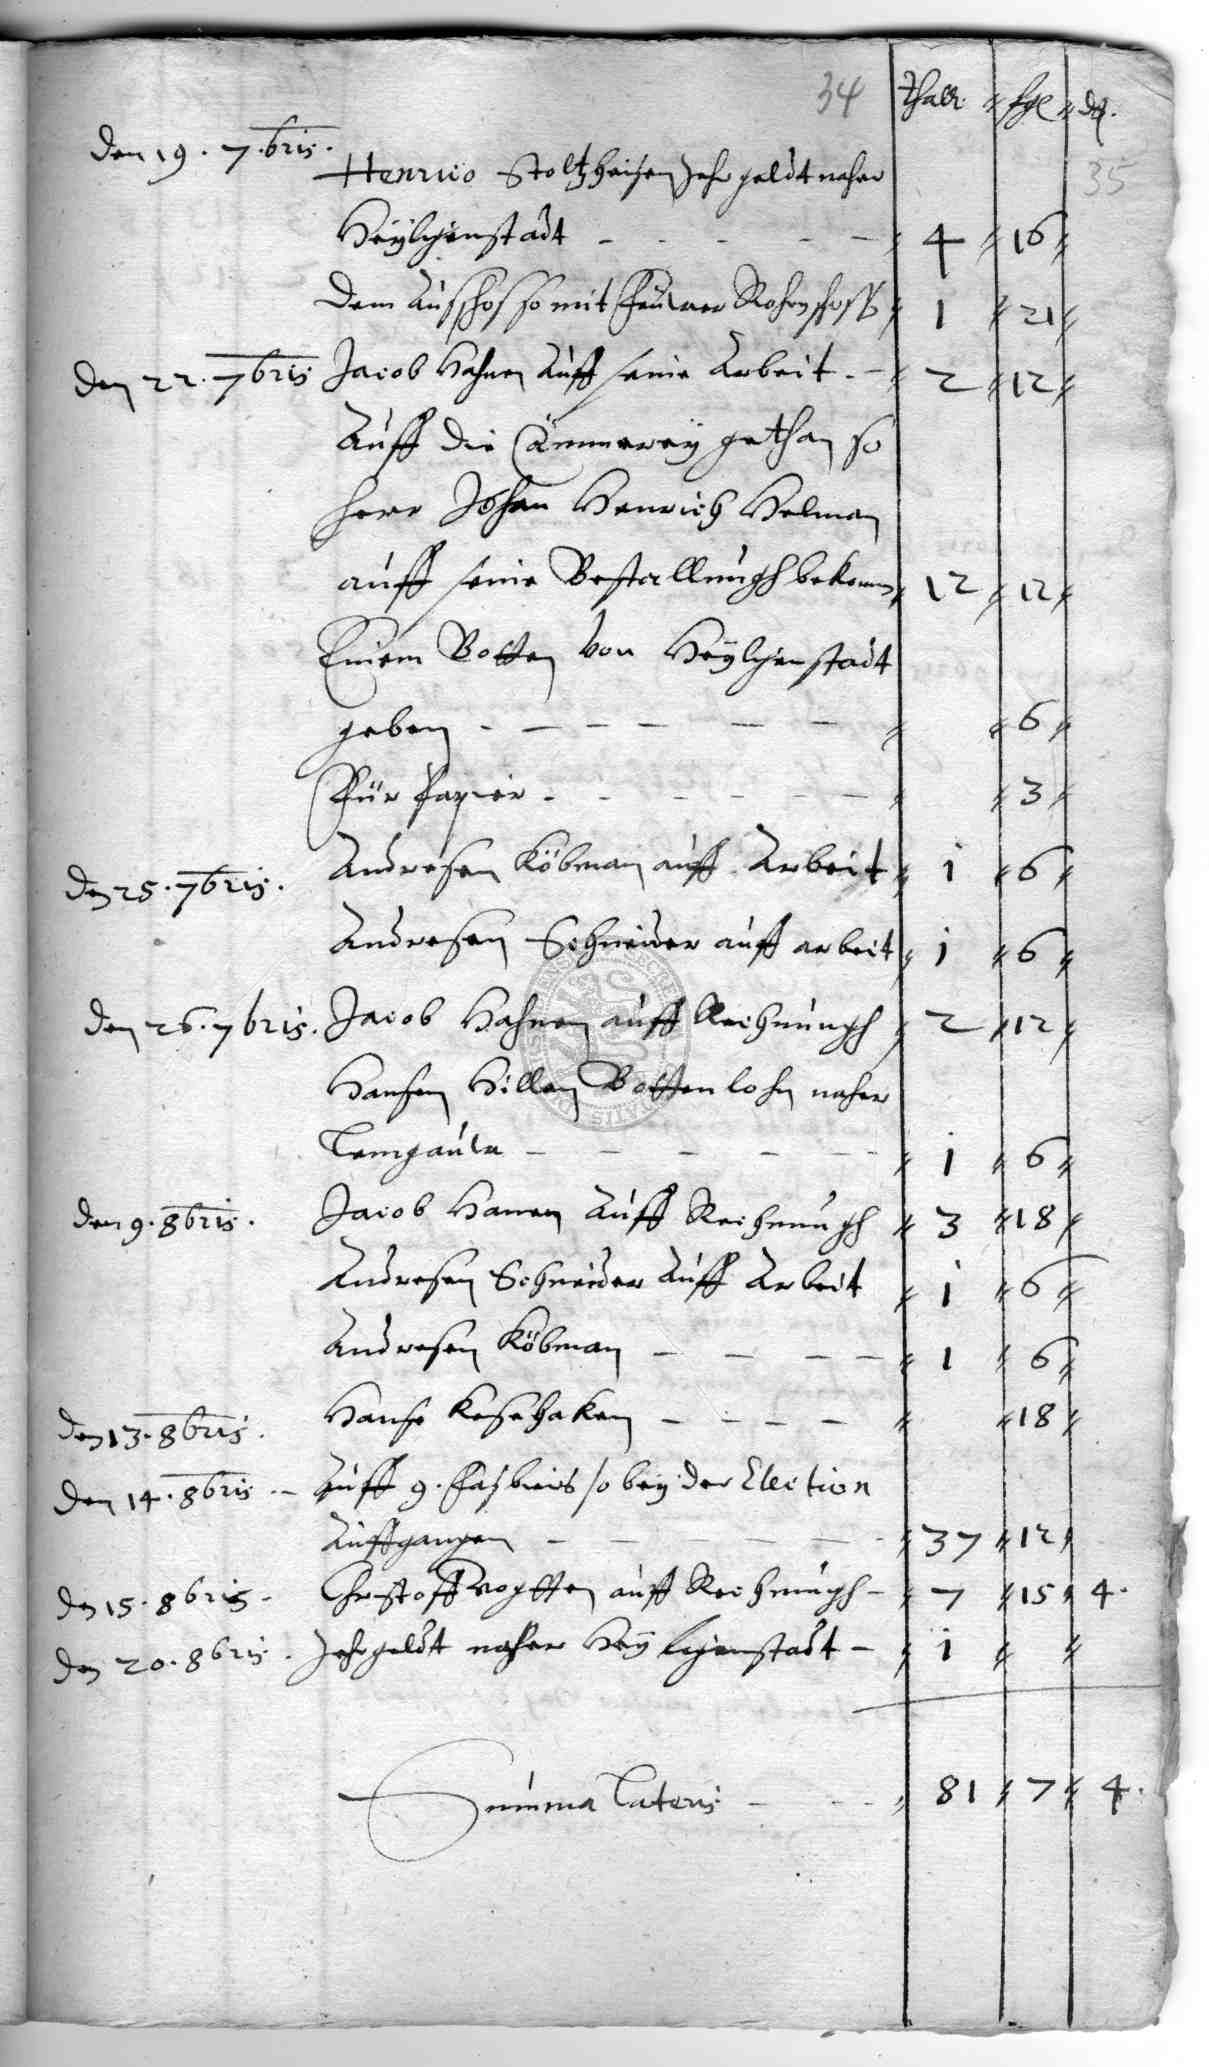 34 thall. sgl d.
35
den 19. 7.bris.
Henrico Stoltzheisen Zehrgeldt naher
Heyligenstadt - - - - - 4 16
Dem Ausschos so mit 1 21
den 22. 7bris Jacob Hahnen Auff seine Arbeit. - 2 12
Auff die Cämmerey gethan so
herr Johan Henrich Helman
auff seine Bestallungh bekomen 12 12
Einem Botten von Heyligenstadt
geben - - - - - - 6
Für Papier - - - - - - 3
den 25. 7bris. Andresen Köbman auff Arbeit 1 6
Andresen Schneider auff arbeit 1 6
den 26. 7bris. Jacob Hahnen auff Rechnungh 2 12
Hansen Hillen Bottenlohn naher
- - - - - 1 6
den 9. 8bris. Jacob Hanen Auff Rechnungh 3 18
Andresen Schneider Auff Arbeit 1 6
Andresen Köbman - - - - 1 6
den 13. 8bris. Hanse Kesehaken - - - - 18
den 14. 8bris. - Auff 9. Fas biers so bey der Election
Auffgangen - - - - - - 37 12
den 15. 8bris - Christoff Vogtten auff Rechnungh - 7 15 4.
den 20. 8bris. Zehrgeldt naher Heyligenstadt - 1
Summa Lateris - - - 81 7 4.